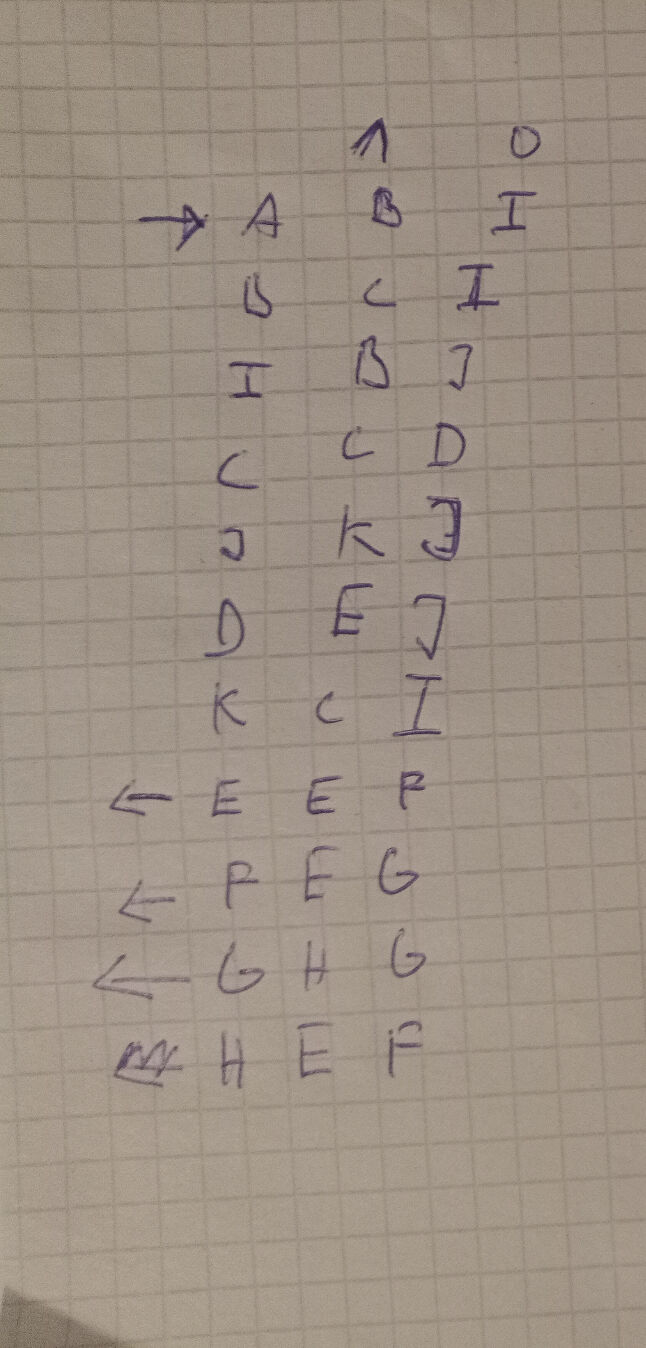 1 0
→ A B I
B C I
I B J
C C D
J K J
D E J
K C I
← E E F
← F E G
← G H G
H E F